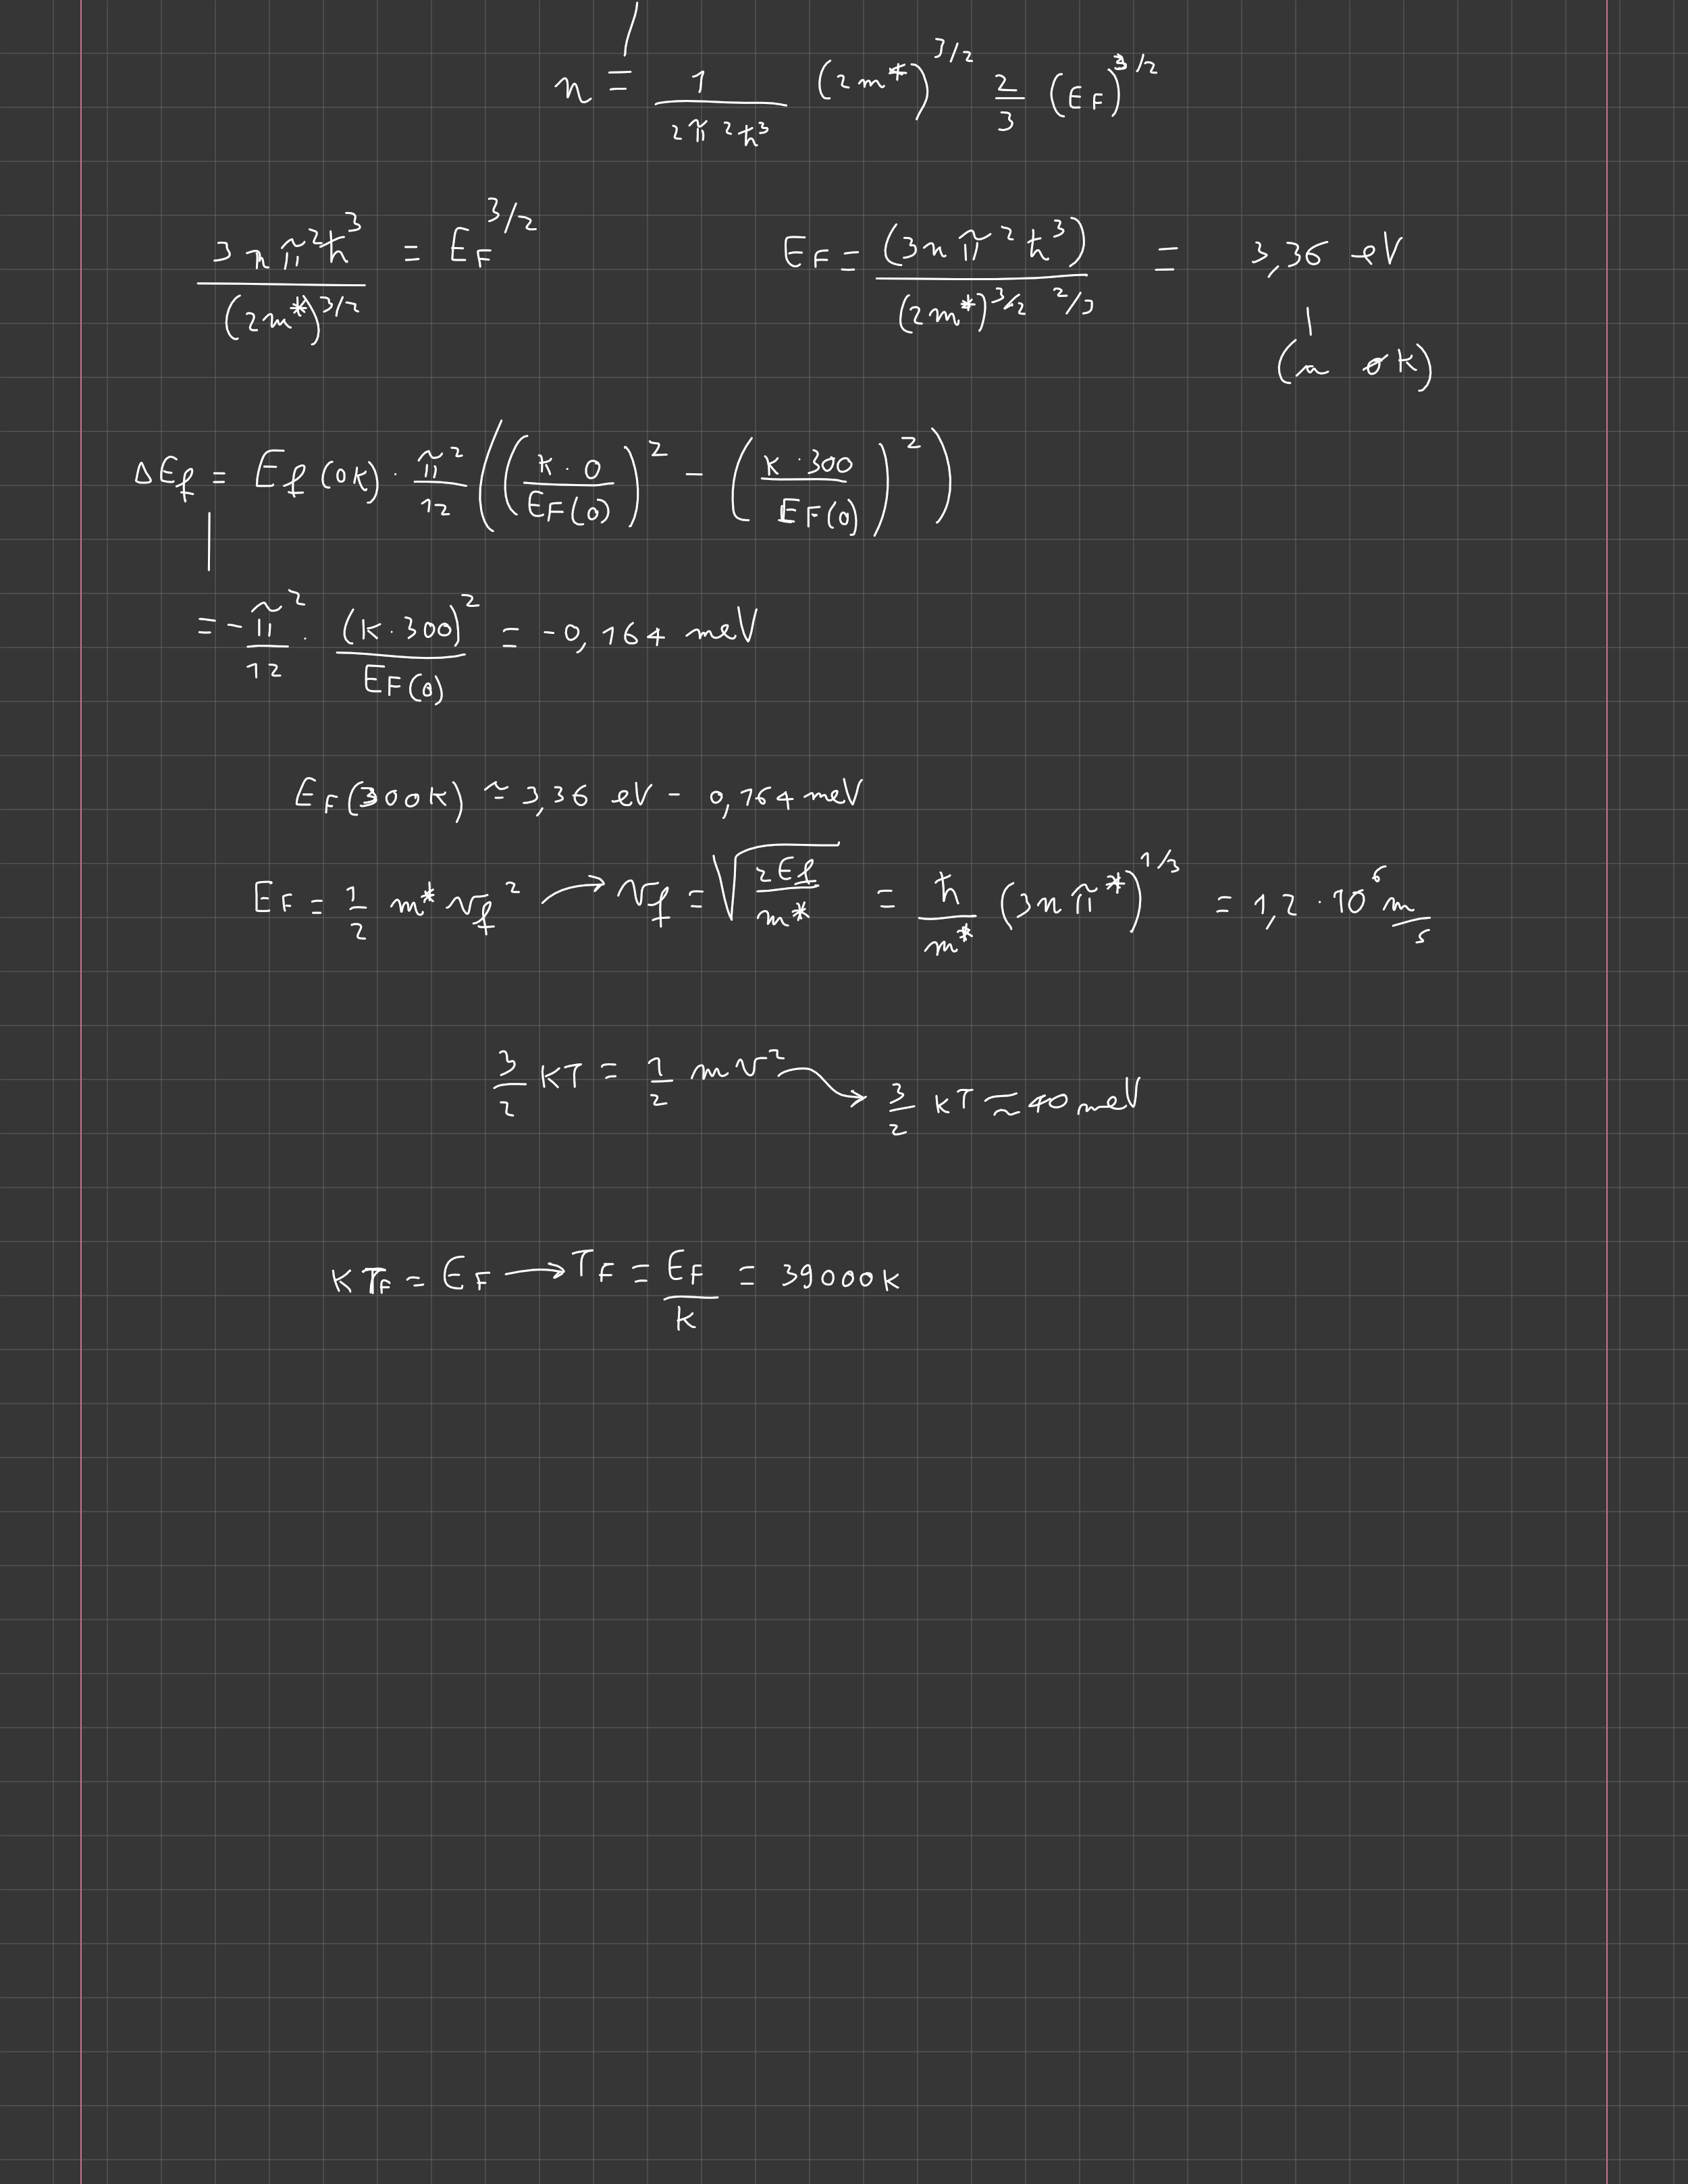 n = 1/(2π²ħ³) (2m*)^3/2 2/3 (E_F)^3/2
3nπ²ħ³/(2m*)^3/2 = E_F^3/2    E_F = (3nπ²ħ³)/(2m*)^3/2 ^2/3 = 3,36 eV
(a 0K)
ΔE_f = E_f(0K) · π²/12 ((K·0/E_F(0))² - (K·300/E_F(0))²)
= - π²/12 · (K·300)²/E_F(0) = -0,164 meV
E_F(300K) ≈ 3,36 eV - 0,164 meV
E_F = 1/2 m* v_f² → v_f = √(2E_f/m*) = ħ/m* (3nπ*)^1/3 = 1,2 · 10⁶ m/s
3/2 KT = 1/2 mv² → 3/2 KT ≈ 40 meV
KT_F = E_F → T_F = E_F/K = 39000K